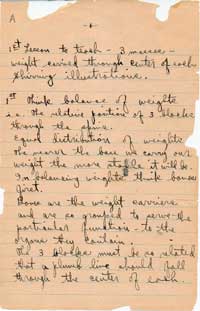 A
- 1 -
1st Lesson to teach - 3 masses -
weight carried through center of each
Skinning illustrations.
1st Think balance of weights
i.e. the relative position of 3 blocks
through the spine.
Equal distribution of weights.
The nearer the base we carry our
weight the more stable it will be.
In balancing weights think bones
first.
Bones are the weight carriers
and are so grouped to serve the
particular function - to the
organs they contain.
The 3 blocks must be so related
that a plumb line should fall
through the center of each.